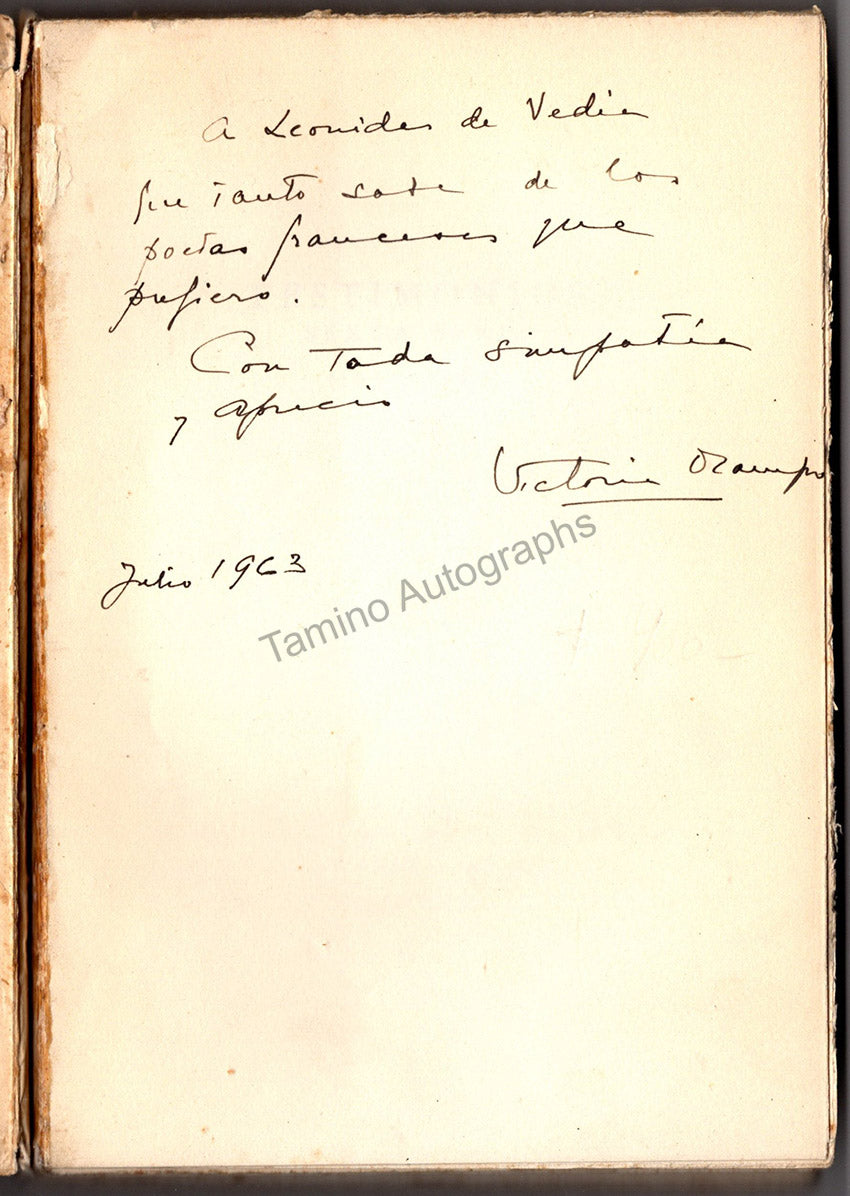 A Leonidas de Vedia
que tanto sabe de los
poetas franceses que
prefiero.
Con toda simpatía
y aprecio
Victoria Ocampo
Julio 1963
Tamino Autographs